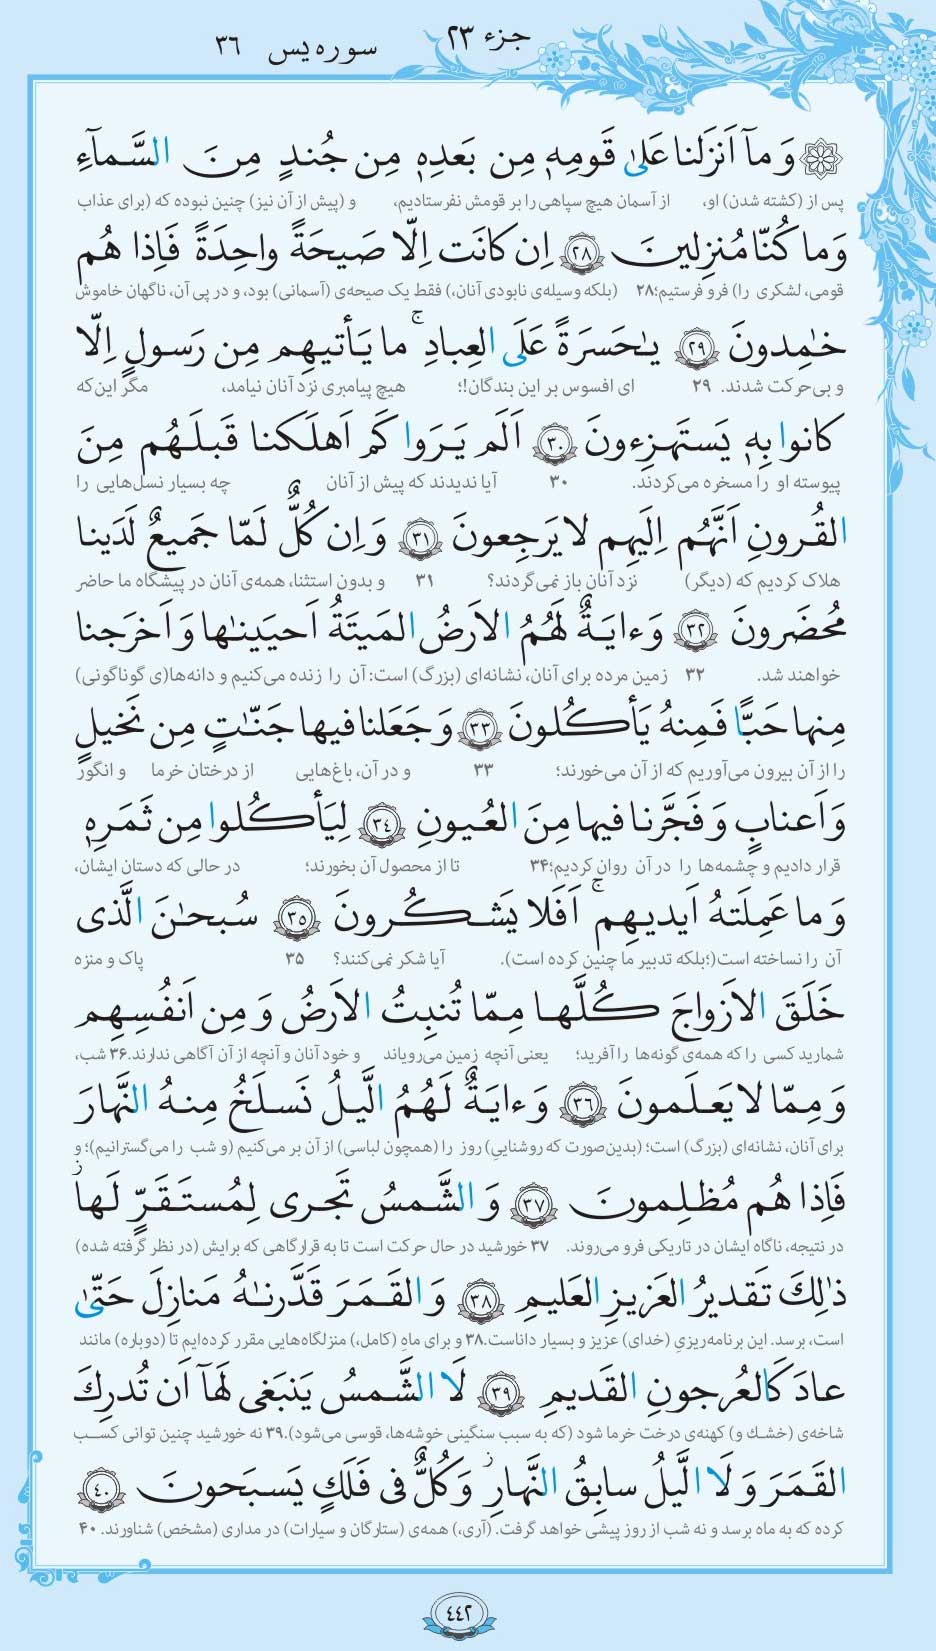 جزء ٢٣
سوره یس ٣٦
وَ مآ اَنزَلنا عَلیٰ قَومِهٖ مِن بَعدِهٖ مِن جُندٍ مِنَ السَّمآءِ
پس از (کشته شدن) او، از آسمان هیچ سپاهی را بر قومش نفرستادیم، و (پیش از آن نیز) چنین نبوده که (برای عذاب
وَ ما کُنّا مُنزِلینَ ٢٨ اِن کانَت اِلّا صَیحَةً واحِدَةً فَاِذا هُم
قومی، لشکری را) فرو فرستیم؛ ٢٨ (بلکه وسیله‌ی نابودی آنان،) فقط یک صیحه‌ی (آسمانی) بود، و در پی آن، ناگهان خاموش
خٰمِدونَ ٢٩ یٰحَسرَةً عَلَی العِبادِ ۚ ما یَأتیهِم مِن رَسولٍ اِلّا
و بی‌حرکت شدند. ٢٩ ای افسوس بر این بندگان!؛ هیچ پیامبری نزد آنان نیامد، مگر این‌که
کانوا بِهٖ یَستَهزِءونَ ٣٠ اَلَم یَرَوا کَم اَهلَکنا قَبلَهُم مِنَ
پیوسته او را مسخره می‌کردند. ٣٠ آیا ندیدند که پیش از آنان چه بسیار نسل‌هایی را
القُرونِ اَنَّهُم اِلَیهِم لا یَرجِعونَ ٣١ وَ اِن کُلٌّ لَمّا جَمیعٌ لَدَینا
هلاک کردیم که (دیگر) نزد آنان باز نمی‌گردند؟ ٣١ و بدون استثنا، همه‌ی آنان در پیشگاه ما حاضر
مُحضَرونَ ٣٢ وَ ءایَةٌ لَهُمُ الاَرضُ المَیتَةُ اَحیَینٰها وَ اَخرَجنا
خواهند شد. ٣٢ زمین مرده برای آنان، نشانه‌ای (بزرگ) است: آن را زنده می‌کنیم و دانه‌ها(ی گوناگونی)
مِنها حَبًّا فَمِنهُ یَأکُلونَ ٣٣ وَ جَعَلنا فیها جَنّٰتٍ مِن نَخیلٍ
را از آن بیرون می‌آوریم که از آن می‌خورند؛ ٣٣ و در آن، باغ‌هایی از درختان خرما و انگور
وَ اَعنابٍ وَ فَجَّرنا فیها مِنَ العُیونِ ٣٤ لِیَأکُلوا مِن ثَمَرِهٖ
قرار دادیم و چشمه‌ها را در آن روان کردیم؛ ٣۴ تا از محصول آن بخورند؛ در حالی که دستان ایشان،
وَ ما عَمِلَتهُ اَیدیهِم ۚ اَفَلا یَشکُرونَ ٣٥ سُبحٰنَ الَّذی
آن را نساخته است(؛بلکه تدبیر ما چنین کرده است). آیا شکر نمی‌کنند؟ ٣۵ پاک و منزه
خَلَقَ الاَزواجَ کُلَّها مِمّا تُنبِتُ الاَرضُ وَ مِن اَنفُسِهِم
شمارید کسی را که همه‌ی گونه‌ها را آفرید؛ یعنی آنچه زمین می‌رویاند و خود آنان و آنچه از آن آگاهی ندارند. ٣۶ شب،
وَ مِمّا لا یَعلَمونَ ٣٦ وَ ءایَةٌ لَهُمُ الَّیلُ نَسلَخُ مِنهُ النَّهارَ
برای آنان، نشانه‌ای (بزرگ) است؛ (بدین‌صورت که روشناییِ) روز را (همچون لباسی) از آن بر می‌کنیم (و شب را می‌گسترانیم)؛ و
فَاِذا هُم مُظلِمونَ ٣٧ وَ الشَّمسُ تَجری لِمُستَقَرٍّ لَها
در نتیجه، ناگاه ایشان در تاریکی فرو می‌روند. ٣٧ خورشید در حال حرکت است تا به قرارگاهی که برایش (در نظر گرفته شده)
ذٰلِكَ تَقدیرُ العَزیزِ العَلیمِ ٣٨ وَ القَمَرَ قَدَّرنٰهُ مَنازِلَ حَتّیٰ
است، برسد. این برنامه‌ریزیِ (خدای) عزیز و بسیار داناست. ٣٨ و برای ماهِ (کامل،) منزلگاه‌هایی مقرر کرده‌ایم تا (دوباره) مانند
عادَ کَالعُرجونِ القَدیمِ ٣٩ لَا الشَّمسُ یَنبَغی لَهآ اَن تُدرِكَ
شاخه‌ی (خشك و) کهنه‌ی درخت خرما شود (که به سبب سنگینی خوشه‌ها، قوسی می‌شود). ٣٩ نه خورشید چنین توانی کسب
القَمَرَ وَ لَا الَّیلُ سابِقُ النَّهارِ وَ کُلٌّ فی فَلَكٍ یَسبَحونَ ٤٠
کرده که به ماه برسد و نه شب از روز پیشی خواهد گرفت. (آری،) همه‌ی (ستارگان و سیارات) در مداری (مشخص) شناورند. ۴٠
٤٤٢